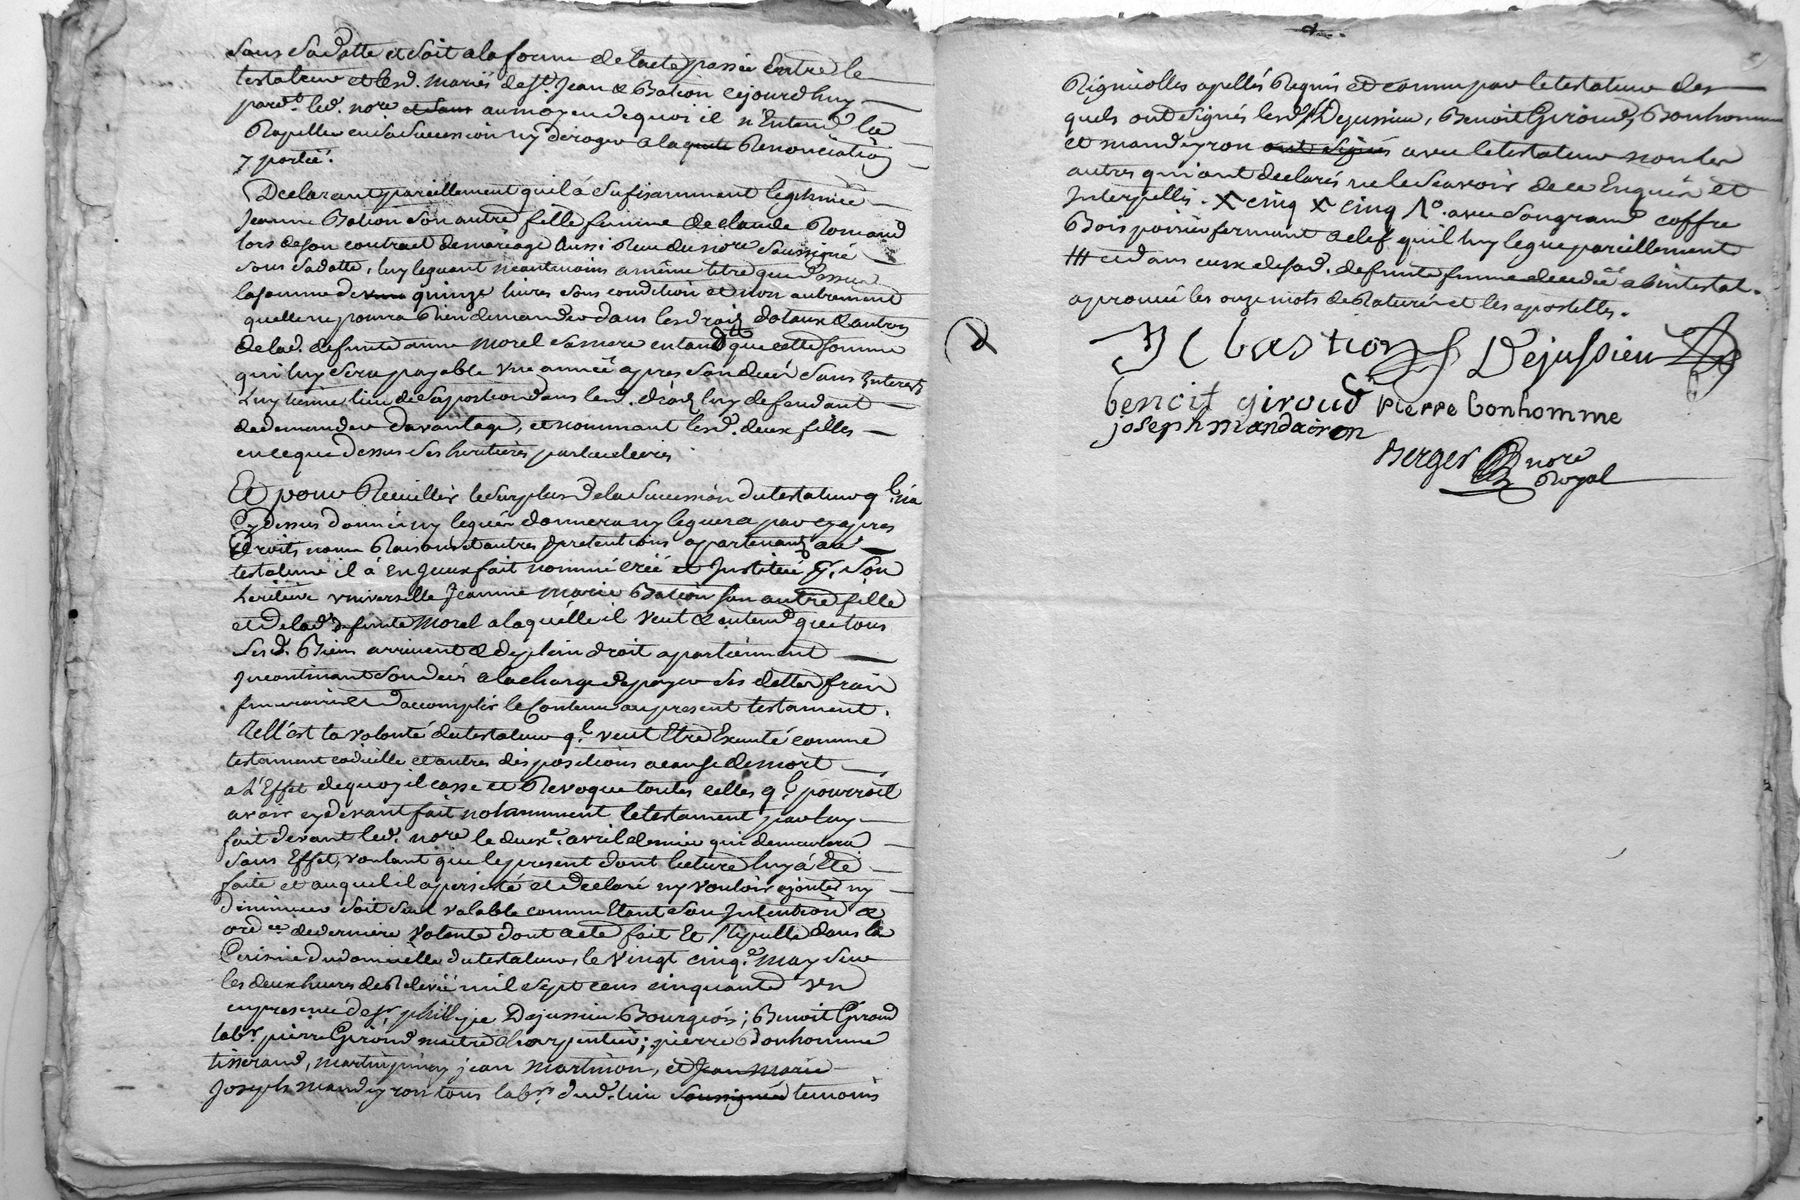 sans sa dotte et soit a la forme de l'acte passé Entre le
testateur et lesd. mariés de Sr. Jean & Bation cejourd'huy
pard.t led. nore et sans au moyen de quoi il n'Entend la
Rapeller en sa Succession ny déroger a la quitte Renonciation
y portée.
Déclarant pareillement qu'il a sufisamment légitimée
Jeanne Bation son autre fille femme de claude Romand
lors de son contract de mariage Aussi Reçu du nore soussigné
sous sa dotte, luy leguant néantmoins a même titre que dessus
la somme de quinze livres sous condition et non autrement
quelle ne pourra Rien demander dans les droits dotaux & autres
de lad. defunte anne Morel sa mere entend que cette somme
qui luy sera payable une année apres son decés sans Interests
Luy tienne lieu de sa portion dans lesd. droits luy defendant
de demander davantage, et nommant lesd. deux filles
en ce que dessus ses heritieres particulieres
Et pour Recuillir le surplus de la Succession du testateur ql. n'a
Cy dessus donné ny legué donnera ny leguera par cy apres
Droits noms Raisons et autres pretentions apartenants au
testateur il a En Jceux fait nommé créé et Institué p. son
heritiere universelle Jeanne Marie Bation son autre fille
et de lad. defunte Morel a laquelle il veut & entend que tous
sesd. Biens arrivent & de plein droit apartiennent
Incontinant son decés a la charge de payer ses dettes frais
funeraires et d'accomplir le Contenu au present testament.
Tell'est la volonté du testateur ql. veut Etre Executé comme
testament codicille et autres dispositions a cause de mort
a L'Effet de quoy il casse et Revoque toutes celles ql. pourroit
avoir cy devant fait notamment le testament par luy
fait devant led. nore le deuxe. avril dernier qui demeurera
sans Effet, voulant que le present dont lecture luy a Eté
faite et auquel il a persisté et declaré ny vouloir ajouter ny
diminuer soit seul valable comme Etant son Intention &
ordce. de derniere volonté dont acte fait Et Stipullé dans la
Cuisine du domicille du testateur le vingt cinqe. May sur
les deux heures de Relevée mil sept cens cinquante un
en presence de Sr. phillipe Dejussieu Bourgeois; Benoit Giroud
labr. pierre Giroud maitre charpentier; pierre Bonhomme
tisserand, Martin jean Martinon, et Jean Marie
Joseph Mandeyron tous labrs. dud. lieu soussignés temoins
Rigniolles apellés Requis et connus par le testateur des
quels ont signés lesd. Srs. Dejussieu, Benoit Giroud, Bonhomme
et mandeyron ont signés avec le testateur non les
autres qui ont declarés ne le Scavoir de ce Enquis et
Interpellés. X cinq X cinq 1°. avec son grand coffre
Bois poirier fermant a clef qu'il luy legue pareillement
III et dans ceux de sad. defunte femme decedée abintestat.
aprouvé les onze mots de Raturés et les apostilles.
J C bastion Dejussieu
benoit giroud pierre bonhomme
joseph mandairon
Berger nore
Royal